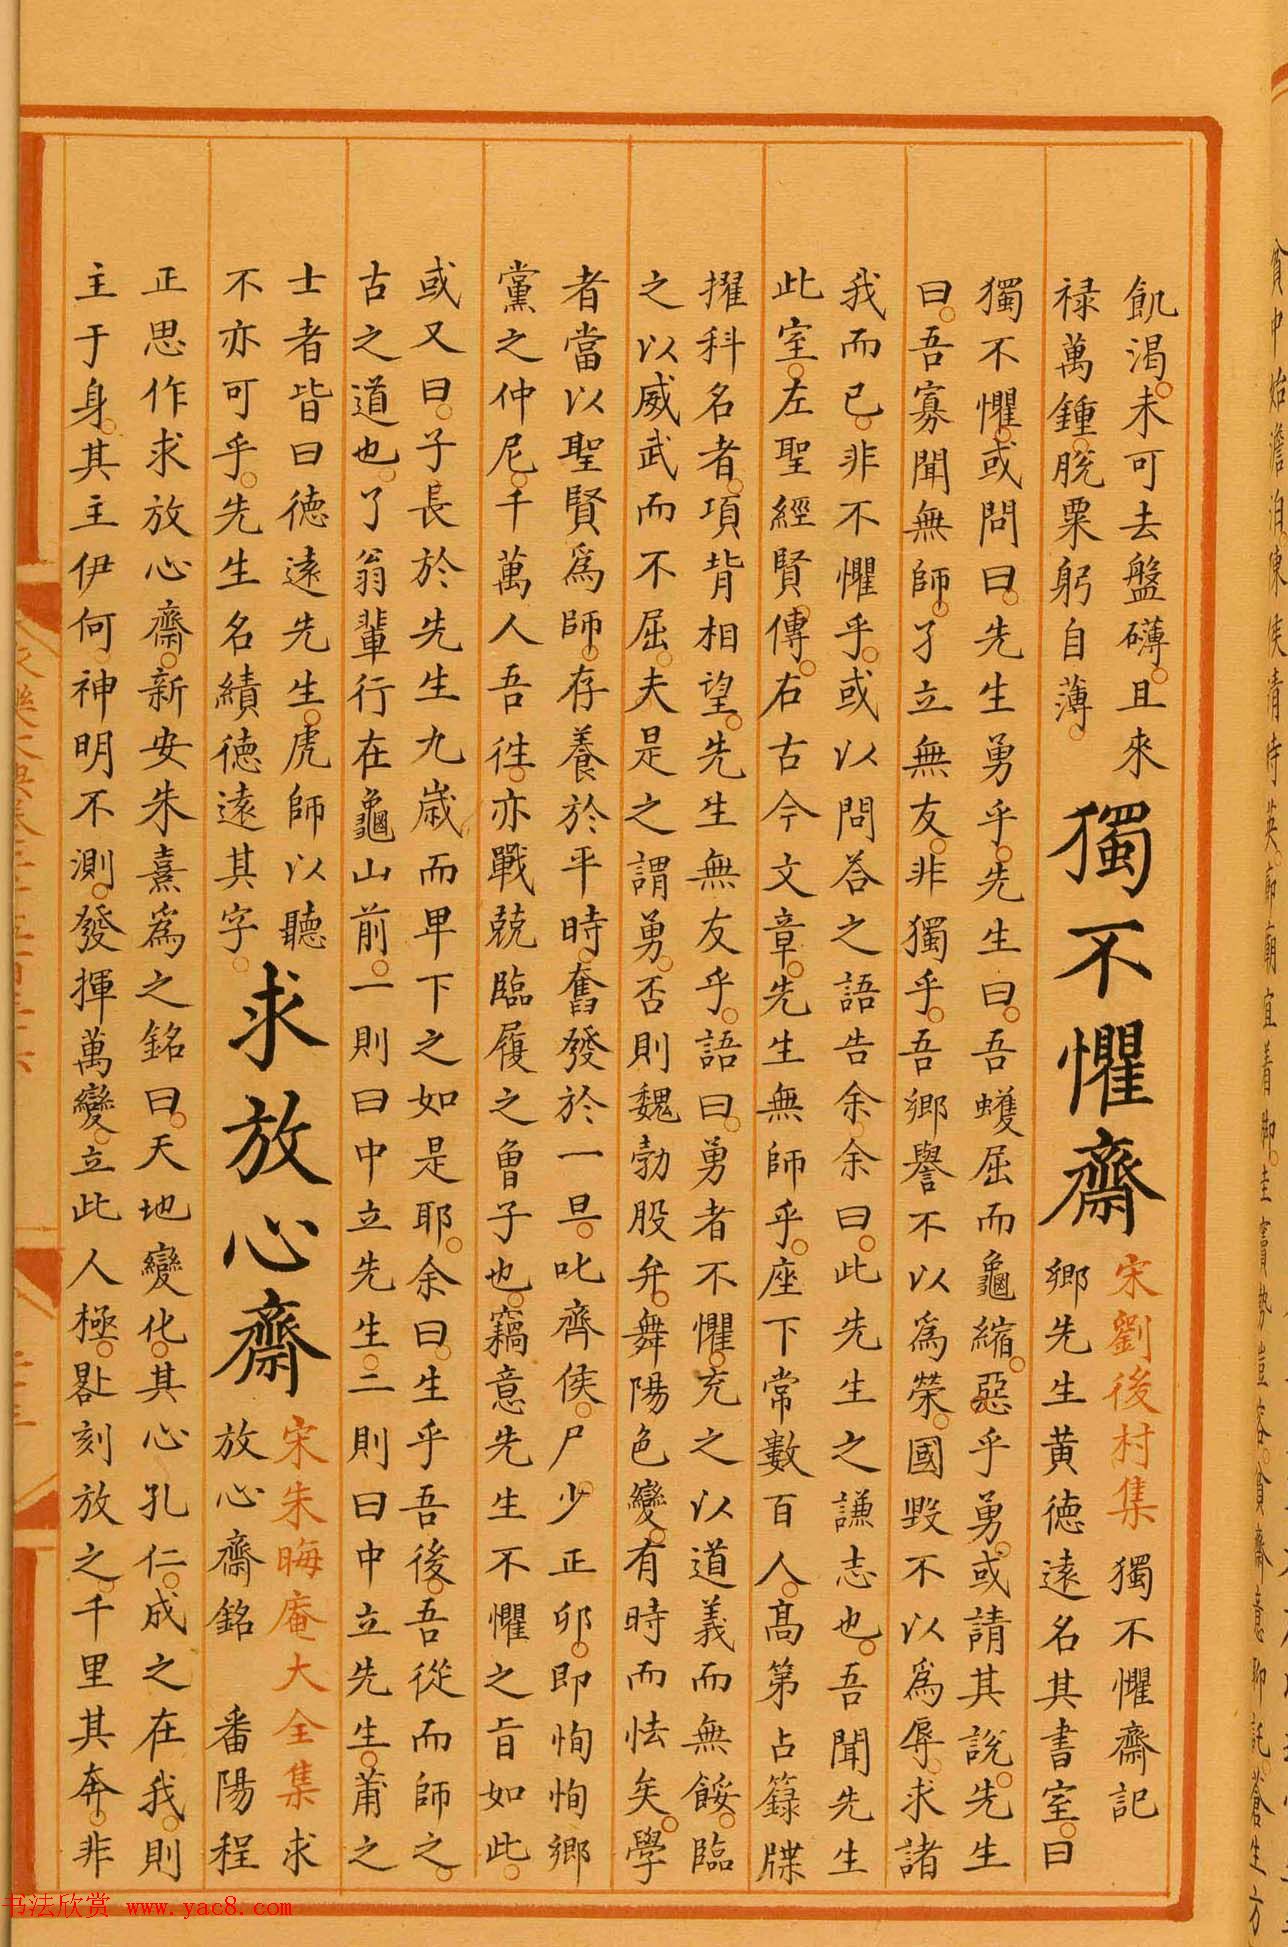 飢渴未可去盤礴且來
祿萬鍾脫粟躬自薄
獨不懼齋
宋劉後村集 獨不懼齋記
鄉先生黃德遠名其書室曰
獨不懼或問曰先生勇乎先生曰吾蠖屈而龜縮惡乎勇或請其說先生
曰吾寡聞無師孑立無友非獨乎吾鄉譽不以爲榮國毀不以爲辱求諸
我而已非不懼乎或以問答之語告余余曰此先生之謙志也吾聞先生
此室左聖經賢傳右古今文章先生無師乎座下常數百人高第占籙牒
擢科名者項背相望先生無友乎語曰勇者不懼充之以道義而無餒臨
之以威武而不屈夫是之謂勇否則魏勃股弁舞陽色變有時而怯矣學
者當以聖賢爲師存養於平時奮發於一旦叱齊侯尸少正卯即恂恂鄉
黨之仲尼千萬人吾往亦戰兢臨履之曾子也竊意先生不懼之旨如此
或又曰子長於先生九歲而卑下之如是耶余曰生乎吾後吾從而師之
古之道也了翁輩行在龜山前一則曰中立先生二則曰中立先生莆之
士者皆曰德遠先生虎師以聽
不亦可乎先生名績德遠其字
求放心齋
宋朱晦庵大全集 求
放心齋銘 番陽程
正思作求放心齋新安朱熹爲之銘曰天地變化其心孔仁成之在我則
主于身其主伊何神明不測發揮萬變立此人極晷刻放之千里其奔非
书法欣赏 www.yac8.com